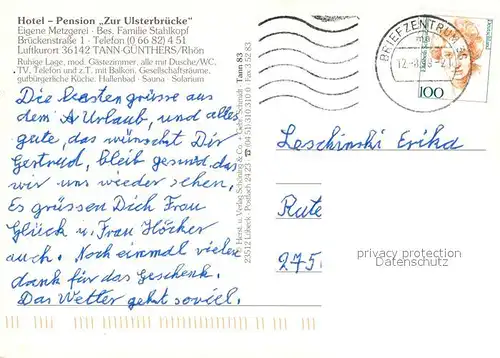 Hotel – Pension „Zur Ulsterbrücke"
Eigene Metzgerei · Bes. Familie Stahlkopf
Brückenstraße 1 · Telefon (0 66 82) 4 51
Luftkurort 36142 TANN-GÜNTHERS/Rhön
Ruhige Lage, mod. Gästezimmer, alle mit Dusche/WC,
TV, Telefon und z.T. mit Balkon, Gesellschaftsräume,
gutbürgerliche Küche. Hallenbad · Sauna · Solarium
Die besten grüsse aus
dem Urlaub, und alles
gute, das wünscht Dir
Gertrud, bleib gesund, das
wir uns wieder sehen,
Es grüssen Dich Frau
Glück u. Frau Höcker
auch. Noch einmal vielen
dank für das Geschenk.
Das Wetter geht soviel.
Tann 83
Herst. u. Verlag Schöning & Co. + Gebr. Schmidt
23512 Lübeck · Postfach 24 23 · ☎ (04 51) 310 310 · Fax 3 52 83
BRIEFZENTRUM 36
100
Leschinski Erika
Rute
275
privacy protection
www.delcampe.net